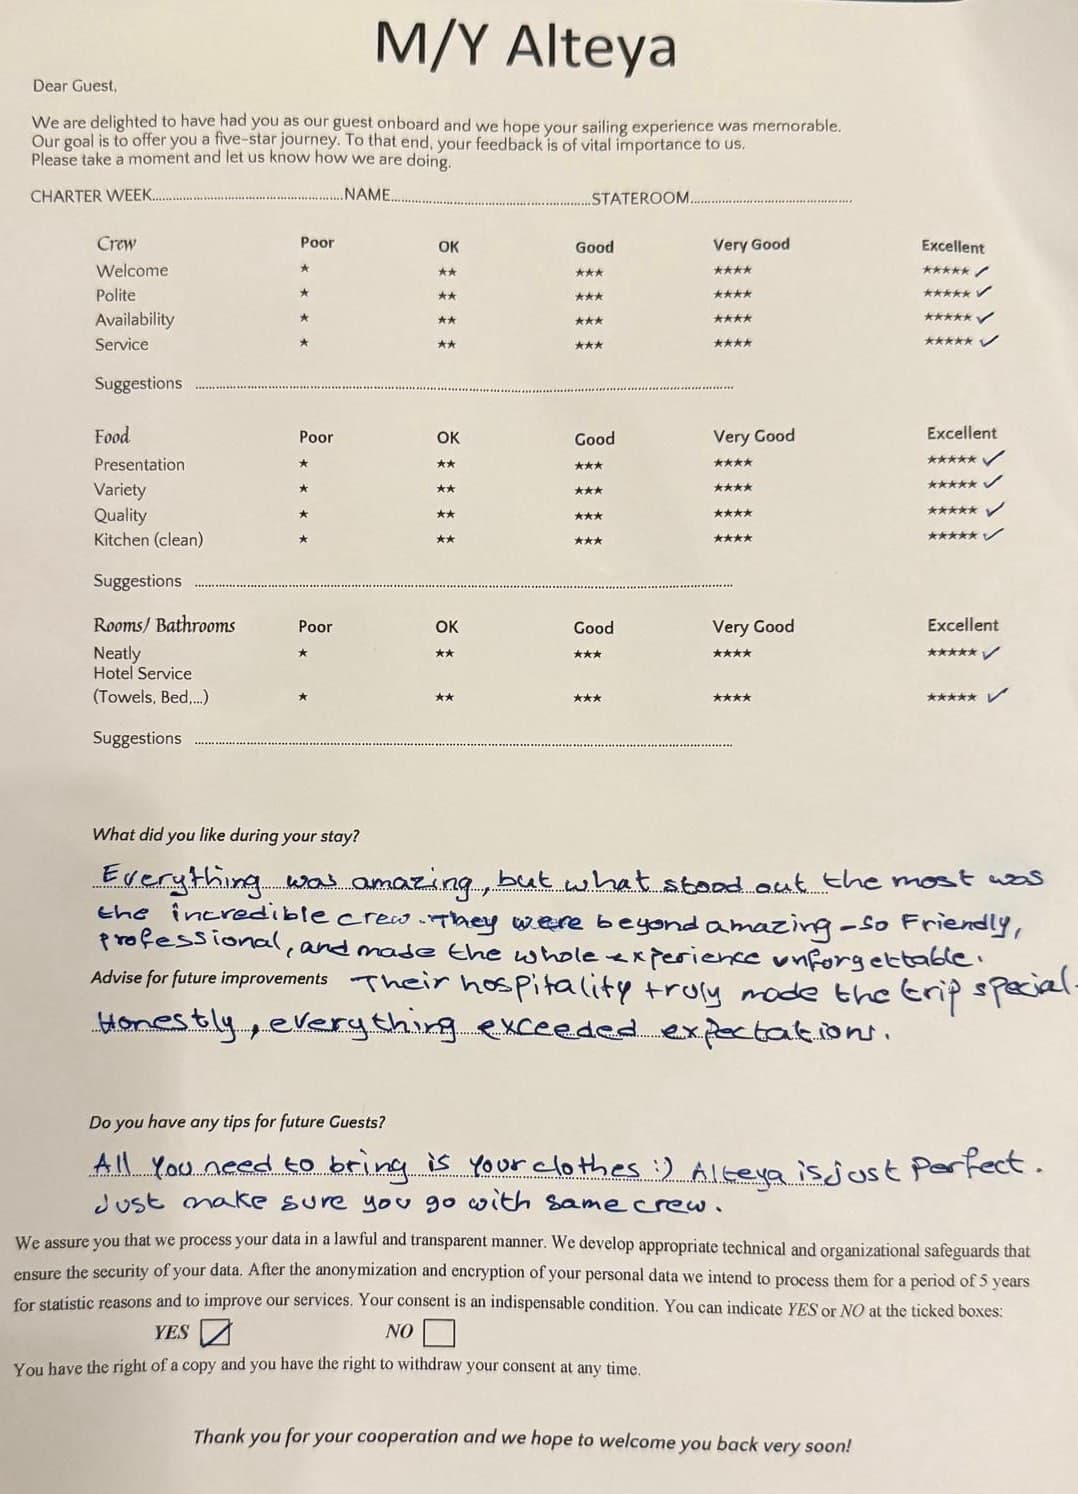 M/Y Alteya
Dear Guest,
We are delighted to have had you as our guest onboard and we hope your sailing experience was memorable.
Our goal is to offer you a five-star journey. To that end, your feedback is of vital importance to us.
Please take a moment and let us know how we are doing.
CHARTER WEEK..........NAME..........STATEROOM..........
Crew Poor OK Good Very Good Excellent
Welcome ★ ★★ ★★★ ★★★★ ★★★★★ ✓
Polite ★ ★★ ★★★ ★★★★ ★★★★★ ✓
Availability ★ ★★ ★★★ ★★★★ ★★★★★ ✓
Service ★ ★★ ★★★ ★★★★ ★★★★★ ✓
Suggestions ..........
Food Poor OK Good Very Good Excellent
Presentation ★ ★★ ★★★ ★★★★ ★★★★★ ✓
Variety ★ ★★ ★★★ ★★★★ ★★★★★ ✓
Quality ★ ★★ ★★★ ★★★★ ★★★★★ ✓
Kitchen (clean) ★ ★★ ★★★ ★★★★ ★★★★★ ✓
Suggestions ..........
Rooms/ Bathrooms Poor OK Good Very Good Excellent
Neatly ★ ★★ ★★★ ★★★★ ★★★★★ ✓
Hotel Service
(Towels, Bed,...) ★ ★★ ★★★ ★★★★ ★★★★★ ✓
Suggestions ..........
What did you like during your stay?
Everything was amazing, but what stood out the most was
the incredible crew. They were beyond amazing - so Friendly,
professional, and made the whole experience unforgettable.
Advise for future improvements Their hospitality truly made the trip special.
Honestly, everything exceeded expectations.
Do you have any tips for future Guests?
All You need to bring is Your clothes :) Alteya is just Perfect.
Just make sure you go with same crew.
We assure you that we process your data in a lawful and transparent manner. We develop appropriate technical and organizational safeguards that
ensure the security of your data. After the anonymization and encryption of your personal data we intend to process them for a period of 5 years
for statistic reasons and to improve our services. Your consent is an indispensable condition. You can indicate YES or NO at the ticked boxes:
YES ☑ NO ☐
You have the right of a copy and you have the right to withdraw your consent at any time.
Thank you for your cooperation and we hope to welcome you back very soon!